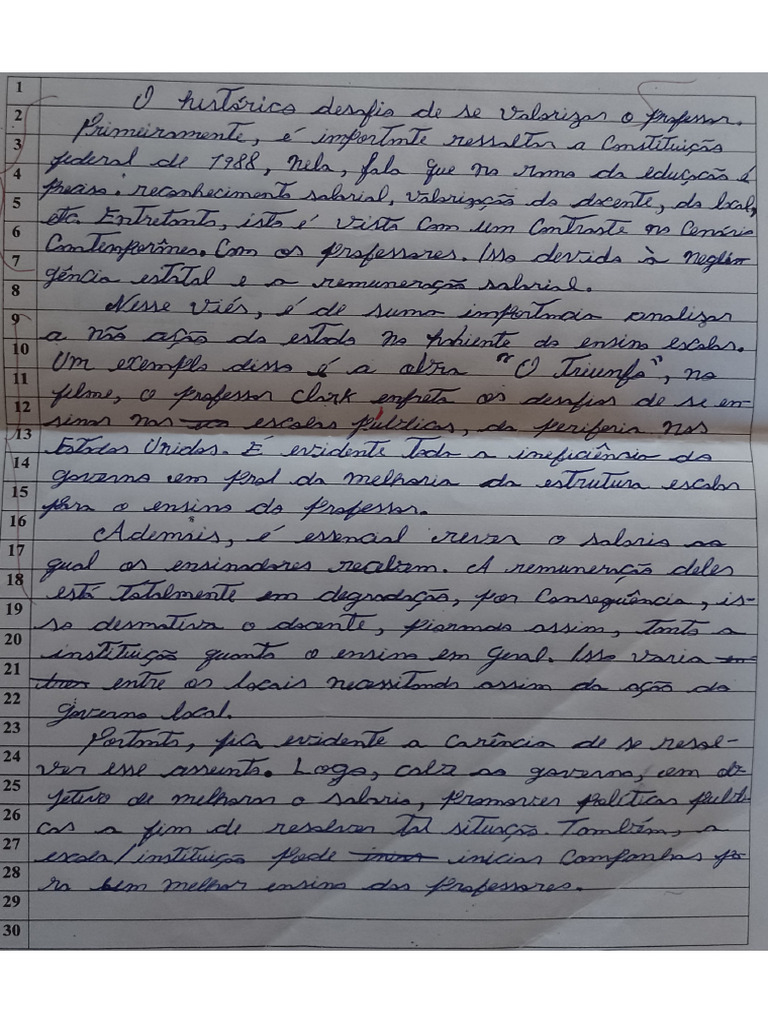 1
2
3
4
5
6
7
8
9
10
11
12
13
14
15
16
17
18
19
20
21
22
23
24
25
26
27
28
29
30
O histórico desafio de se valorizar o professor.
Primeiramente, é importante ressaltar a Constituição
federal de 1988, nela, fala que no ramo da educação é
preciso: reconhecimento salarial, valorização do docente, do local,
etc. Entretanto, isto é visto com um contraste no cenário
contemporâneo. Com os professores. Isso devido à neglin-
gência estatal e a remuneração salarial.
Nesse viés, é de suma importancia analizar
a não ação do estado no do ensino escolar.
Um exemplo disso é a obra "O Triunfo", no
filme, o professor Clark enfreta os desafios de se en-
sinar nas escolas públicas, da periferia nos
Estados Unidos. É evidente toda a ineficiência do
governo em prol da melhoria da estrutura escolar
para o ensino do professor.
Ademais, é essencial rever o salario ao
qual os ensinadores recebem. A remuneração deles
está totalmente em degradação, por consequência, is-
so desmotiva o docente, piorando assim, tanto a
instituição quanto o ensino em geral. Isso varia
entre os locais necessitando assim da ação do
governo local.
Portanto, fica evidente a carência de se resol-
ver esse assunto. Logo, cabe ao governo, em ob-
jetivo de melhorar o salario, promover políticas públi-
cas a fim de resolver tal situação. Também, a
escola/instituição pode iniciar companhas pa-
ra um melhor ensino dos professores.